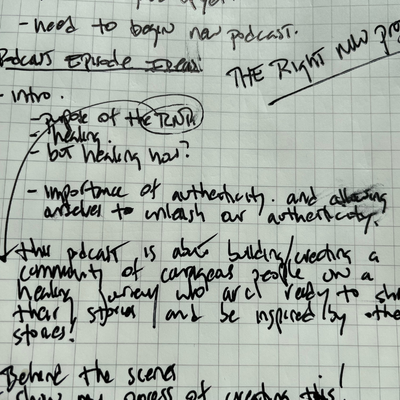 - need to begin new podcast.
Podcast Episode Ideas:
THE Right Now
- intro.
- purpose of the TRNP
- healing
- but healing how?
- importance of authenticity. and allowing
ourselves to unleash our authenticity.
this podcast is about building/creating a
community of courageous people on a
healing journey who are ready to
their stories and be inspired by
stories!
Behind the scenes
my process of creating this